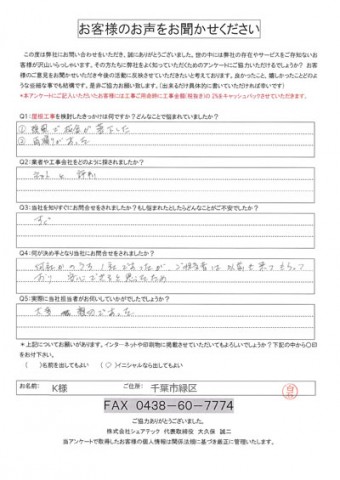 お客様のお声をお聞かせください
この度は弊社にお問い合わせをいただき、誠にありがとうございました。世の中には弊社の存在やサービスをご存知ないお
客様が沢山いらっしゃいます。その方たちに弊社をよく知っていただくためのアンケートにご協力いただけるでしょうか？お客
様のご意見をお聞かせいただき今後の活動に反映させていただきたいと考えております。良かったこと、嬉しかったことどのよ
うな些細な事でも結構です。是非ご協力お願い致します。（出来るだけ具体的に書いていただければ幸いです）
*本アンケートにご記入いただいたお客様には工事ご用命時に工事金額（税抜き）の2%をキャッシュバックさせていただきます。
Q1：屋根工事を検討したきっかけは何ですか？どんなことで悩まれていましたか？
① 強風で板金が落下した
② 雨漏りがあった
Q2：業者や工事会社をどのように探されましたか？
評判
Q3：当社を知りすぐにお問合せをされましたか？もし悩まれたとしたらどんなことがご不安でしたか？
すぐ
Q4：何が決め手となり当社にお問合せをされましたか？
何社かのうち、1社であったが、ご担当者は以前も来てもらって
おり 安心できると思ったため
Q5：実際に当社担当者がお伺いしていかがでしたでしょうか？
大変 親切であった
＊上記についてお願いがあります。インターネットや印刷物に掲載させていただいてもよろしいでしょうか？下記の中から〇印
をお付下さい。
（　）名前を出してもよい　（〇）イニシャルなら出してもよい
お名前： K様 ご住所： 千葉市緑区
FAX 0438-60-7774
ご協力ありがとうございました。
株式会社シェアテック 代表取締役 大久保 誠二
当アンケートで取得したお客様の個人情報は関係法規に基づき厳正に管理いたします。